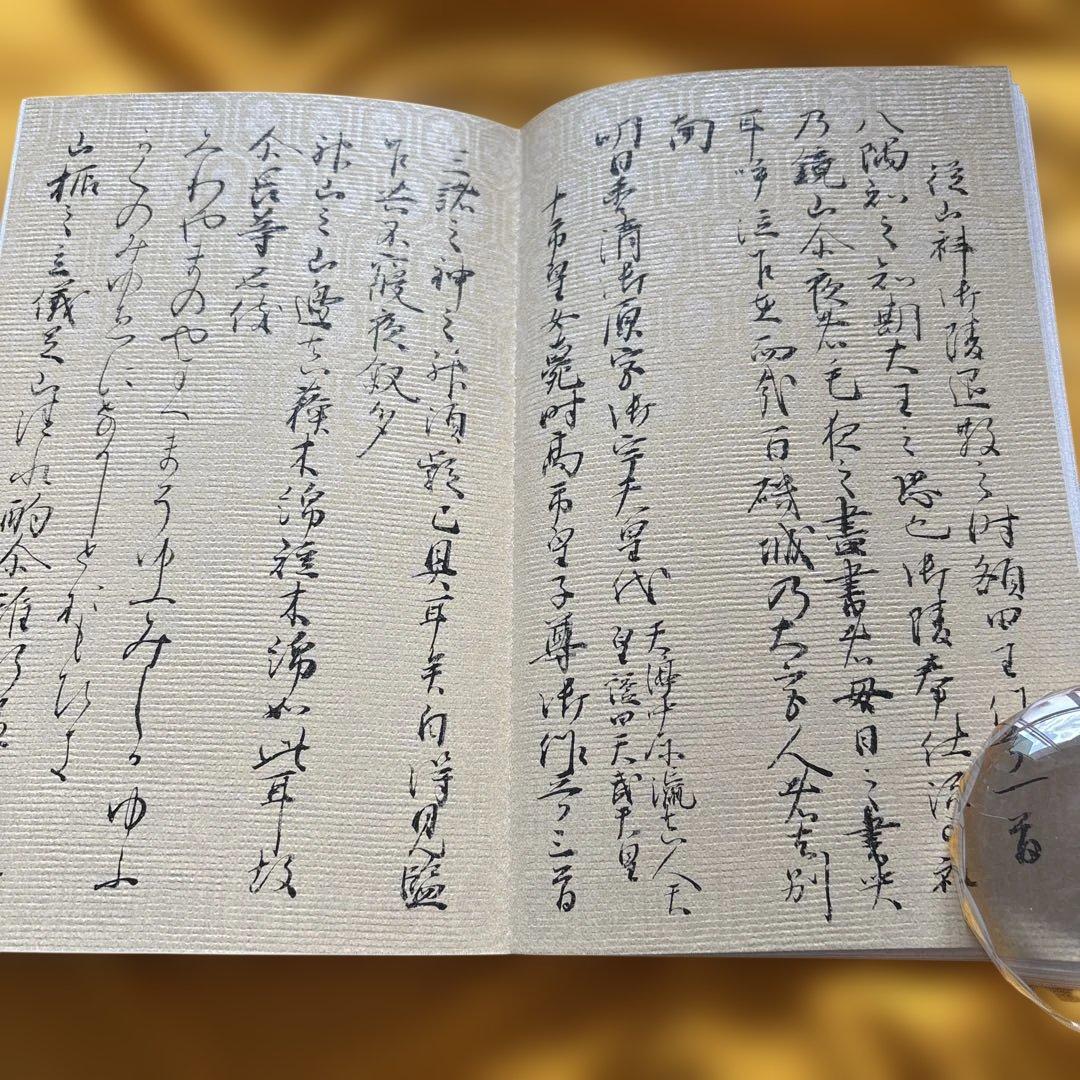 従山科御陵退散之時額田王作歌一首
八隅知之和期大王之恐也御陵奉仕流山科
乃鏡山尓夜者毛夜之盡晝者母日之盡哭
耳呼泣乍在而哉百礒城乃大宮人者去別
南
明日香清御原宮御宇天皇代 天渟中原瀛真人天
皇諡曰天武天皇
十市皇女薨時高市皇子尊御作歌三首
三諸之神之神須疑已具耳矣自得見監
乍共不寝夜叙多
神山之山邊真蘇木綿短木綿如此耳故
尓長等思伎
みわやまのやまへまそゆふみしかゆふ
かくのみゆゑになかしとおもひき
山振之立儀足山清水酌尓雖行